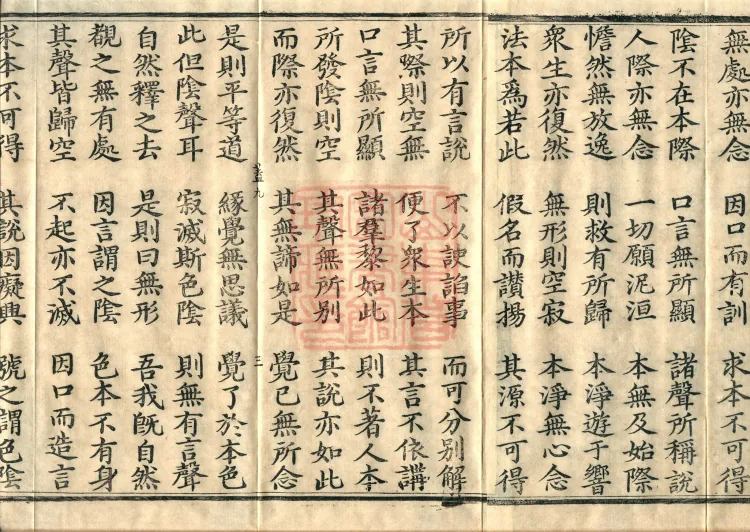 無處亦無念 因口而有訓 求本不可得
陰不在本際 口言無所顯 諸聲所稱說
人際亦無念 一切願泥洹 本無及始際
憺然無放逸 則救有所歸 本淨遊于響
眾生亦復然 無形則空寂 本淨無心念
法本為若此 假名而讚揚 其源不可得
所以有言說 不以諛諂事 而可分別解
其際則空無 便了眾生本 其言不依講
口言無所顯 諸羣黎如此 則不著人本
所發陰則空 其聲無所別 其說亦如此
而際亦復然 其無諦如是 覺已無所念
蓋九 三
是則平等道 緣覺無思議 覺了於本色
此但陰聲耳 寂滅斯色陰 則無有言聲
自然釋之去 是則曰無形 吾我旣自然
覩之無有處 因言謂之陰 色本不有身
其聲皆歸空 不起亦不滅 因口而造言
求本不可得 其說因癡興 號之謂色陰